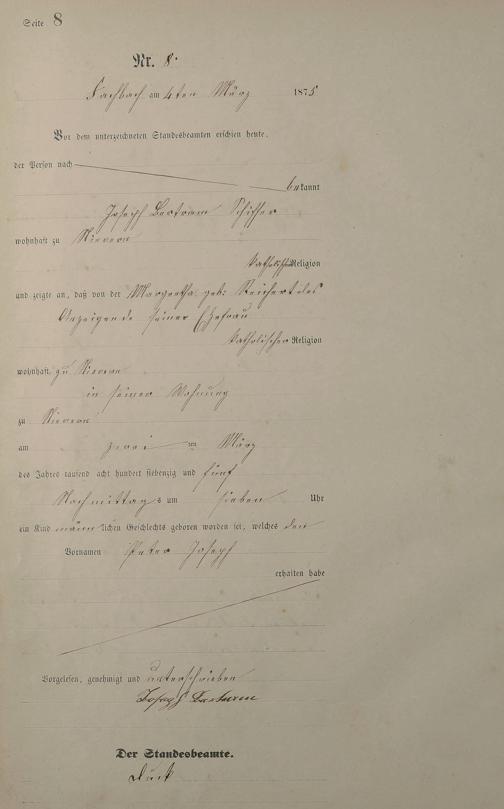 Seite 8
Nr. 8.
Fachbach am 4ten März 1875
Vor dem unterzeichneten Standesbeamten erschien heute,
der Person nach
bekannt
Joseph Bertram Schiffer
wohnhaft zu Nievern
katholischer Religion
und zeigte an, daß von der Margretha geb: Reichert des
Anzeigende seiner Ehefrau
katholischer Religion
wohnhaft zu Nievern
in seiner Wohnung
zu Nievern
am zwei ten März
des Jahres tausend acht hundert siebenzig und fünf
Nachmittags um sieben Uhr
ein Kind männlichen Geschlechts geboren worden sei, welches den
Vornamen Peter Joseph
erhalten habe
Vorgelesen, genehmigt und unterschrieben
Joseph Bertram
Der Standesbeamte.